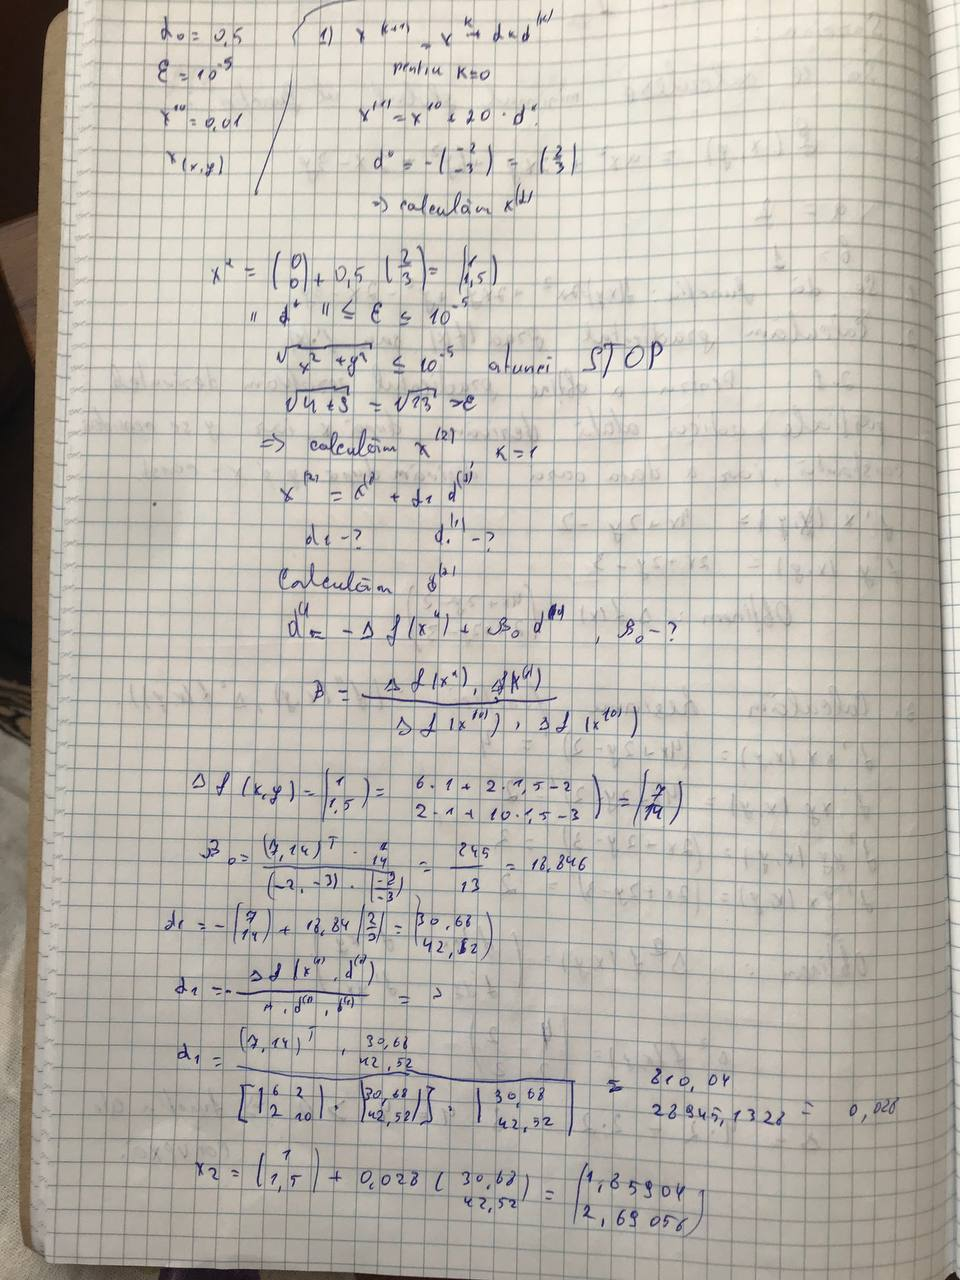 α₀ = 0,5
ε = 10⁻⁵
x¹⁰ = 0,01
x(x,y)
1) x⁽ᵏ⁺¹⁾ = xᵏ + αₖ d⁽ᵏ⁾
pentru k=0
x⁽¹⁾ = x⁽⁰ + 20 · d⁰
d⁰ = -(-2 -3) = (2 3)
=> calculăm x⁽¹⁾
x¹ = (0 0) + 0,5 (2 3) = (1 1,5)
" d¹ " ≤ ε ≤ 10⁻⁵
√x² + y² ≤ 10⁻⁵ atunci STOP
√4+9 = √13 > ε
=> calculăm x⁽²⁾, k=1
x⁽²⁾ = x⁽¹⁾ + α₁ d⁽¹⁾
α₁ -? d⁽¹⁾ -?
Calculăm
d⁽¹ = - Δ f(x¹) + β₀ d, β₀ -?
β = Δ f(x¹), Δf(x⁽¹⁾) / Δ f(x⁽⁰⁾), Δ f(x⁽⁰⁾)
Δ f(x,y) = (1 1,5) = (6·1 + 2·1,5-2 2·1 + 10·1,5-3) = (7 14)
β₀ = (7,14)ᵀ · 7 14 / (-2,-3) · (-2 -3) = 245 / 13 = 18,846
d₁ = -(7 14) + 18,84 (2 3) = (30,68 42,52)
α₁ = - Δ f(x⁽¹⁾, d⁽¹⁾) / A, d⁽¹⁾, d⁽¹⁾ = ?
α₁ = (7,14)ᵀ, 30,68 42,52 / [(6 2 2 10) · (30,68 42,52)] · (30,68 42,52) = 810,04 / 28945,1328 = 0,028
x₂ = (1 1,5) + 0,028 (30,68 42,52) = (1,85904 2,69056)